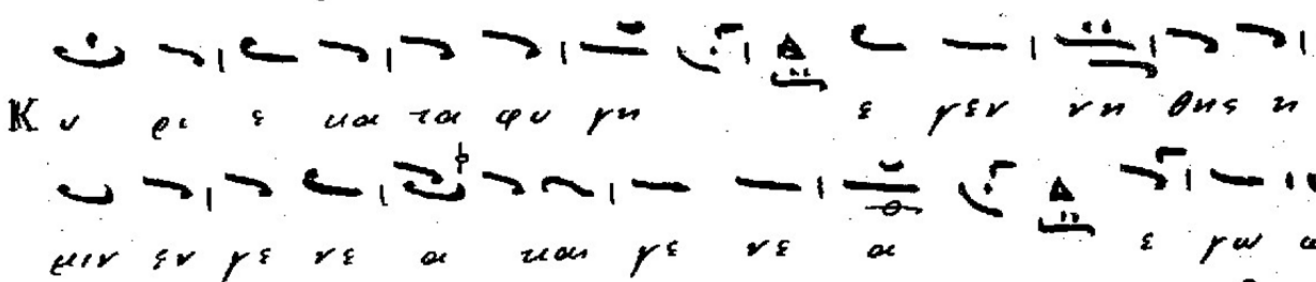 Κυ ρι ε κα τα φυ γη ε γεν νη θης η
μιν εν γε νε α και γε νε α ε γω